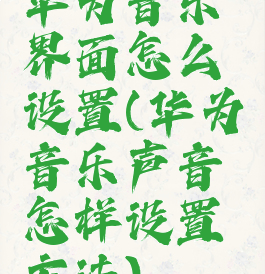 华为音乐
界面怎么
设置(华为
音乐声音
怎样设置
方法)